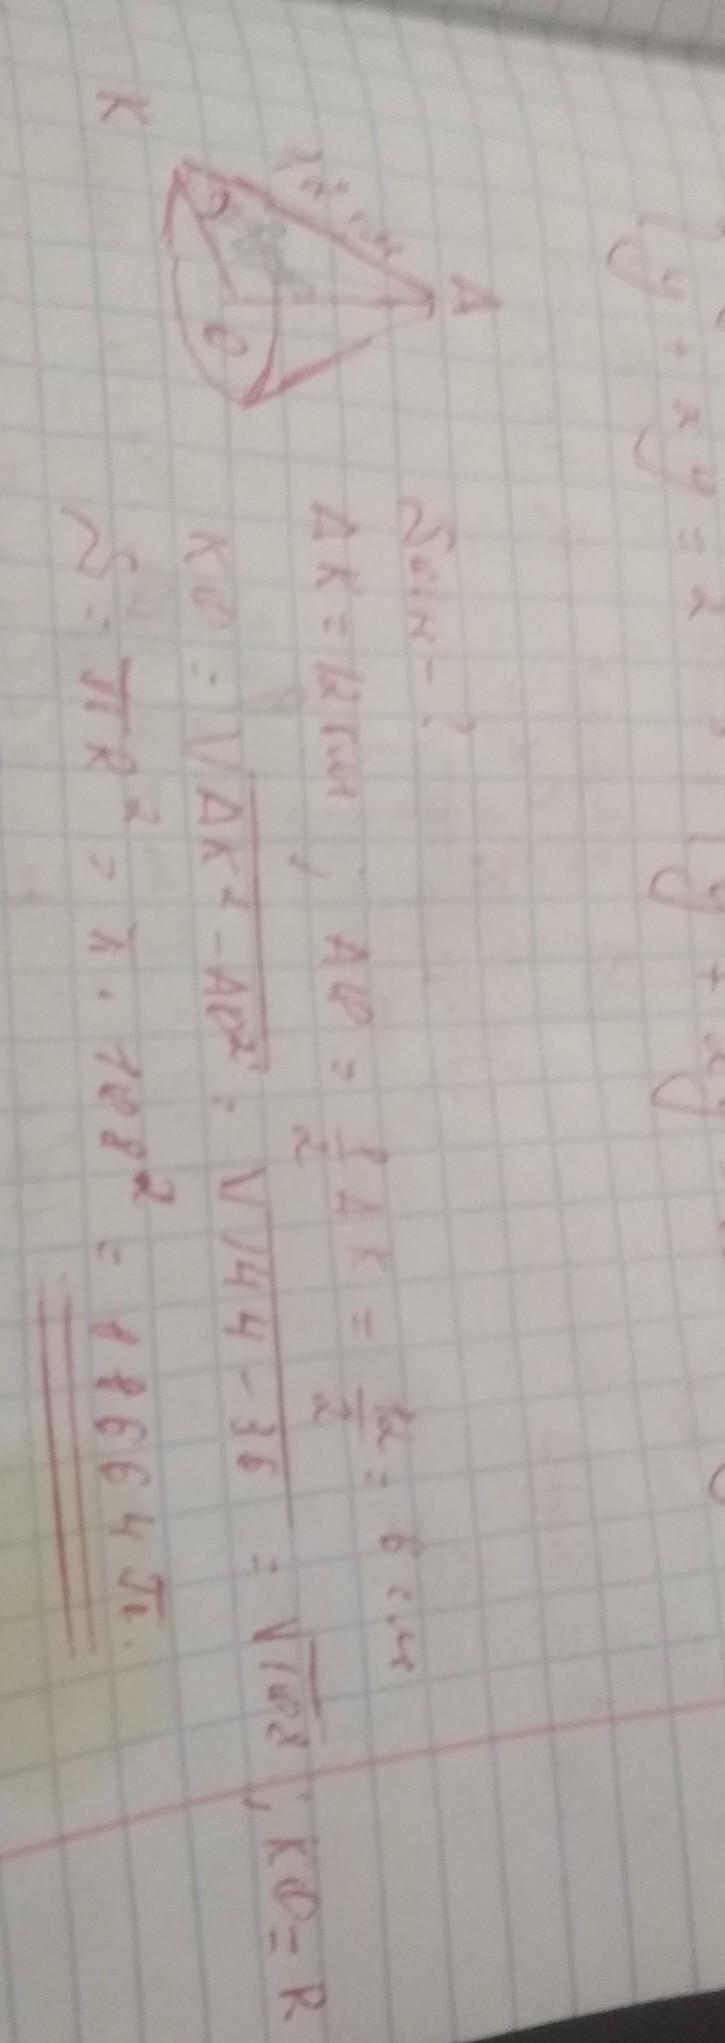 y + xy = 2
y + xy
A
12 см
K
O
Sосн - ?
AK = 12 см , AO = 1/2 AK = 12/2 = 6 см
KO = √AK² - AO² = √144 - 36 = √108 ; KO = R
S = πR² = π · 108² = 11664 π.